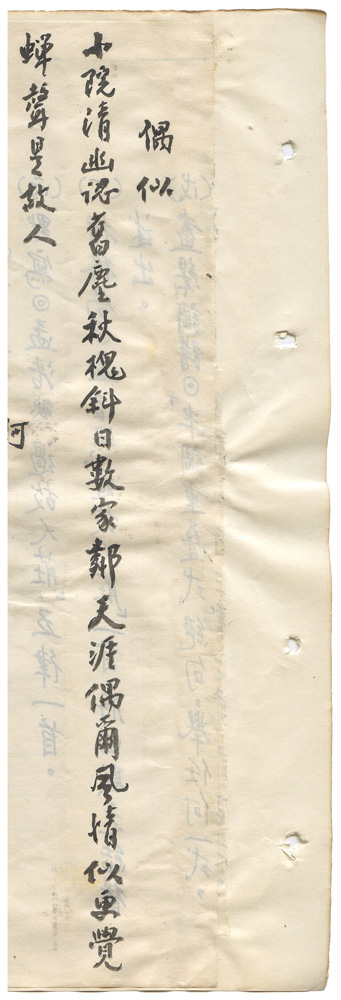 偶似
小院清幽認舊塵秋槐斜日數家鄰天涯偶爾風情似更覺
蟬聲是故人